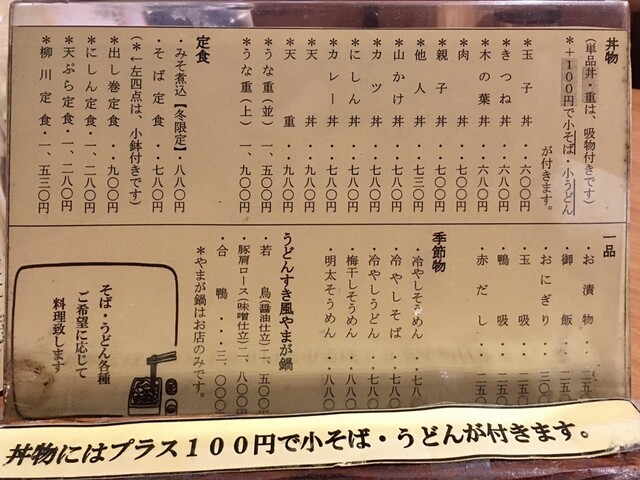 丼物
（単品丼・重は、吸物付きです）
*＋１００円で小そば・小うどん
が付きます。
*玉子丼・・六〇〇円
*きつね丼・・六八〇円
*木の葉丼・・六八〇円
*肉丼・・七〇〇円
*親子丼・・七〇〇円
*他人丼・・七三〇円
*山かけ丼・・七八〇円
*カツ丼・・七八〇円
*にしん丼・・七八〇円
*カレー丼・・七八〇円
*天丼・・九八〇円
*天重・・九八〇円
*うな重（並）一、五〇〇円
*うな重（上）一、九〇〇円
定食
・みそ煮込【冬限定】・八八〇円
・そば定食・・七八〇円
（*←左四点は、小鉢付きです）
*出し巻定食・・九〇〇円
*にしん定食・一、二八〇円
*天ぷら定食・一、二八〇円
*柳川定食・一、五三〇円
一品
・お漬物・・二五
・御飯・・二五〇
・おにぎり・・三〇〇
・玉吸・・二五〇
・鴨吸・・二五〇
・赤だし・・二五〇
季節物
・冷やしそうめん・・七八
・冷やしそば・・七八〇
・冷やしうどん・・七八〇
・梅干しそうめん・・八八〇
・明太そうめん・・八八〇
うどんすき風やまが鍋
・若鳥（醤油仕立）二、五〇〇円
・豚肩ロース（味噌仕立）二、八〇〇円
・合鴨・・三、〇〇〇
*やまが鍋はお店のみです。
そば・うどん各種
ご希望に応じて
料理致します
丼物にはプラス１００円で小そば・うどんが付きます。